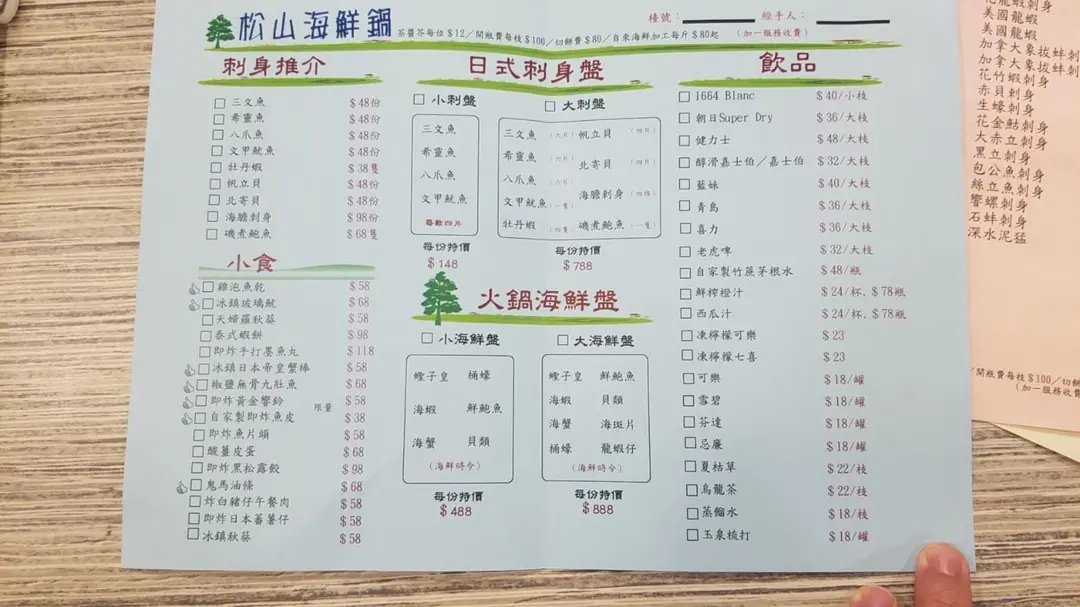 松山海鮮鍋
茶醬芥每位＄12／開瓶費每枝＄100／切餅費＄80／自來海鮮加工每斤＄80起
檯號：
經手人：
(加一服務收費)
刺身推介
三文魚 $48份
希靈魚 $48份
八爪魚 $48份
文甲魷魚 $48份
牡丹蝦 $38隻
帆立貝 $48份
北寄貝 $48份
海膽刺身 $98份
磯煮鮑魚 $68隻
小食
雞泡魚乾 $58
冰鎮玻璃魷 $68
天婦羅秋葵 $58
泰式蝦餅 $98
即炸手打墨魚丸 $118
冰鎮日本帝皇蟹棒 $58
椒鹽無骨九肚魚 $68
即炸黃金響鈴 $58
限量
自家製即炸魚皮 $38
即炸魚片頭 $58
酸薑皮蛋 $68
即炸黑松露餃 $98
鬼馬油條 $68
炸白豬仔午餐肉 $58
即炸日本蕃薯仔 $58
冰鎮秋葵 $58
日式刺身盤
小刺盤
三文魚
希靈魚
八爪魚
文甲魷魚
每款四片
每份特價
$148
大刺盤
三文魚 (六片) 帆立貝 (四片)
希靈魚 (六片) 北寄貝 (四片)
八爪魚 (六片) 海膽刺身
文甲魷魚 (一隻)
牡丹蝦 (四隻) 磯煮鮑魚 (一隻)
每份特價
$788
火鍋海鮮盤
小海鮮盤
蟶子皇 桶蠔
海蝦 鮮鮑魚
海蟹 貝類
(海鮮時令)
每份特價
$488
大海鮮盤
蟶子皇 鮮鮑魚
海蝦 貝類
海蟹 海斑片
桶蠔 龍蝦仔
(海鮮時令)
每份特價
$888
飲品
1664 Blanc $40/小枝
朝日Super Dry $36/大枝
健力士 $48/大枝
醇滑嘉士伯／嘉士伯 $32/大枝
藍妹 $40/大枝
青島 $36/大枝
喜力 $36/大枝
老虎啤 $32/大枝
自家製竹蔗茅根水 $48/瓶
鮮榨橙汁 $24/杯、$78瓶
西瓜汁 $24/杯、$78瓶
凍檸檬可樂 $23
凍檸檬七喜 $23
可樂 $18/罐
雪碧 $18/罐
芬達 $18/罐
忌廉 $18/罐
夏枯草 $22/枝
烏龍茶 $22/枝
蒸餾水 $18/枝
玉泉梳打 $18/罐
花龍蝦刺身
美國龍蝦
美國龍蝦
加拿大象拔蚌刺
加拿大象拔蚌刺
花竹蝦刺身
赤貝刺身
生蠔刺身
花金鮎刺身
大赤立刺身
黑立刺身
包公魚刺身
絲立魚刺身
響螺刺身
石蚌刺身
深水泥猛
/開瓶費每枝＄100／切餅
(加一服務收費